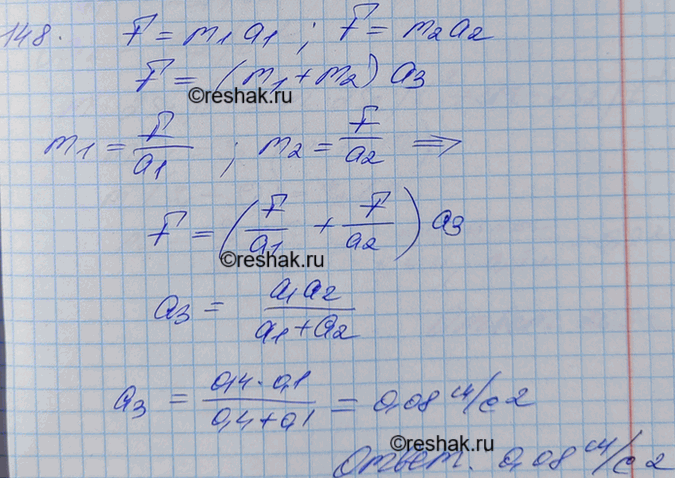 148. F = m1 a1 ; F = m2 a2
F = (m1 + m2) a3
©reshak.ru
m1 = F/a1 ; m2 = F/a2 ⇒
F = (F/a1 + F/a2) a3
©reshak.ru
a3 = a1 a2/a1 + a2
a3 = 0,4 · 0,1/0,4 + 0,1 = 0,08 м/с2
©reshak.ru
Ответ. 0,08 м/с2